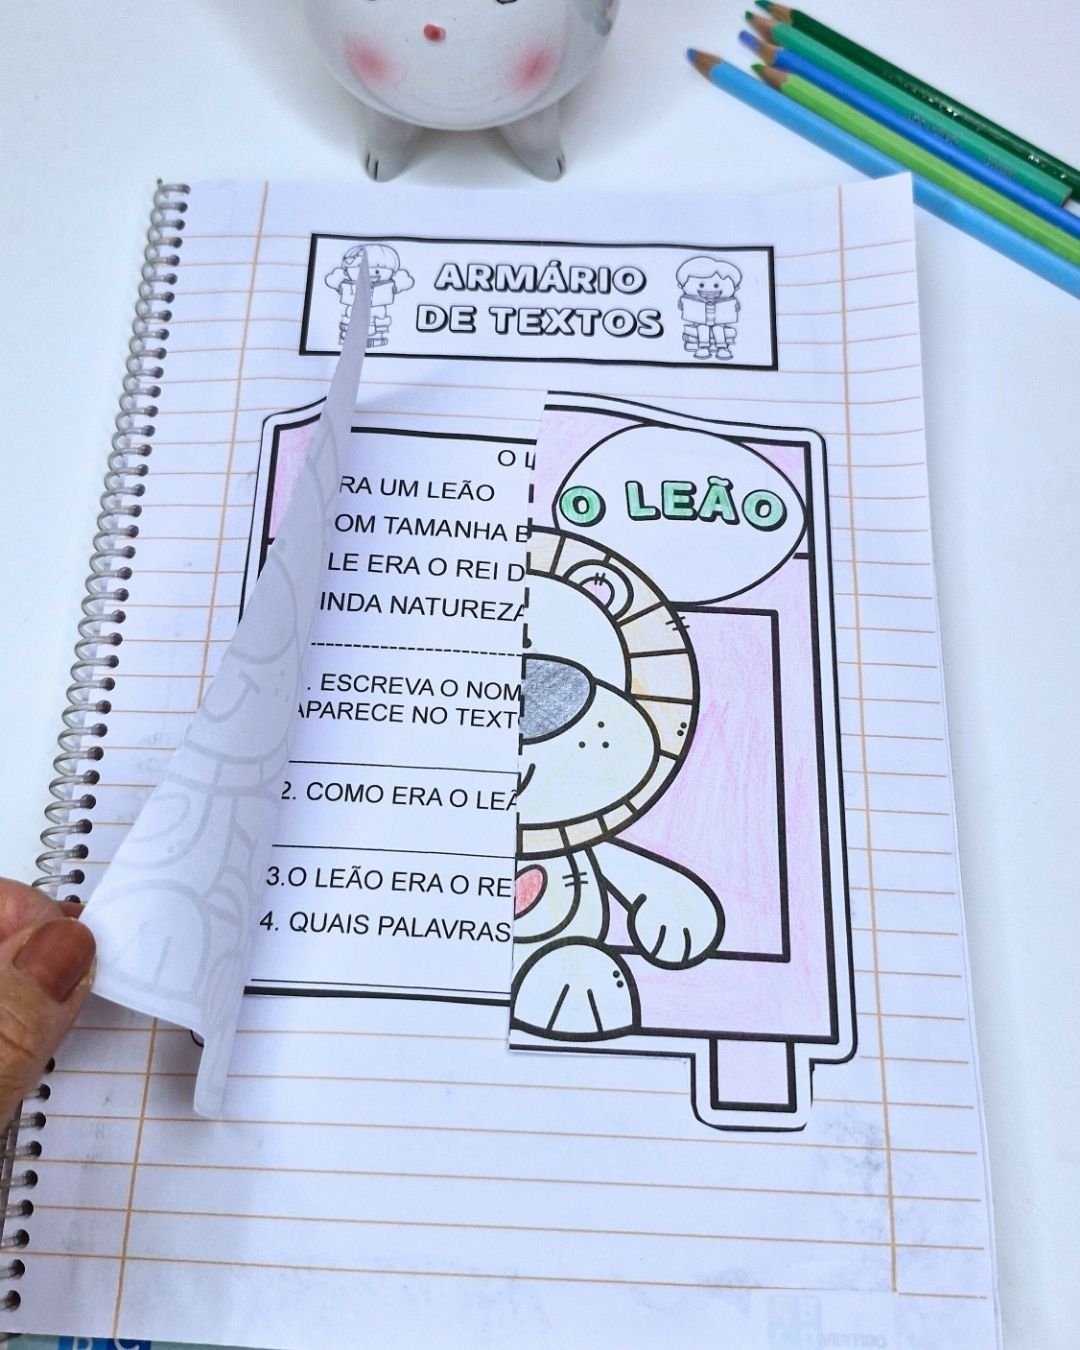 ARMÁRIO
DE TEXTOS
O LEÃO
O L
RA UM LEÃO
OM TAMANHA
LE ERA O REI D
INDA NATUREZA
. ESCREVA O NOM
APARECE NO TEXTO
2. COMO ERA O LEÃ
3.O LEÃO ERA O RE
4. QUAIS PALAVRAS